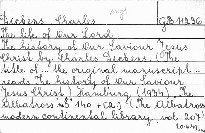 Dickens Charles GB 11336
The life of Our Lord.
The history of Our Saviour Jesus
Christ by Charles Dickens. (The
title of ... the original manuscript ...
reads The history of Our Saviour
Jesus Christ) Hamburg (1934) The
Albatross
(The Albatross
modern continental library, vol. 207)